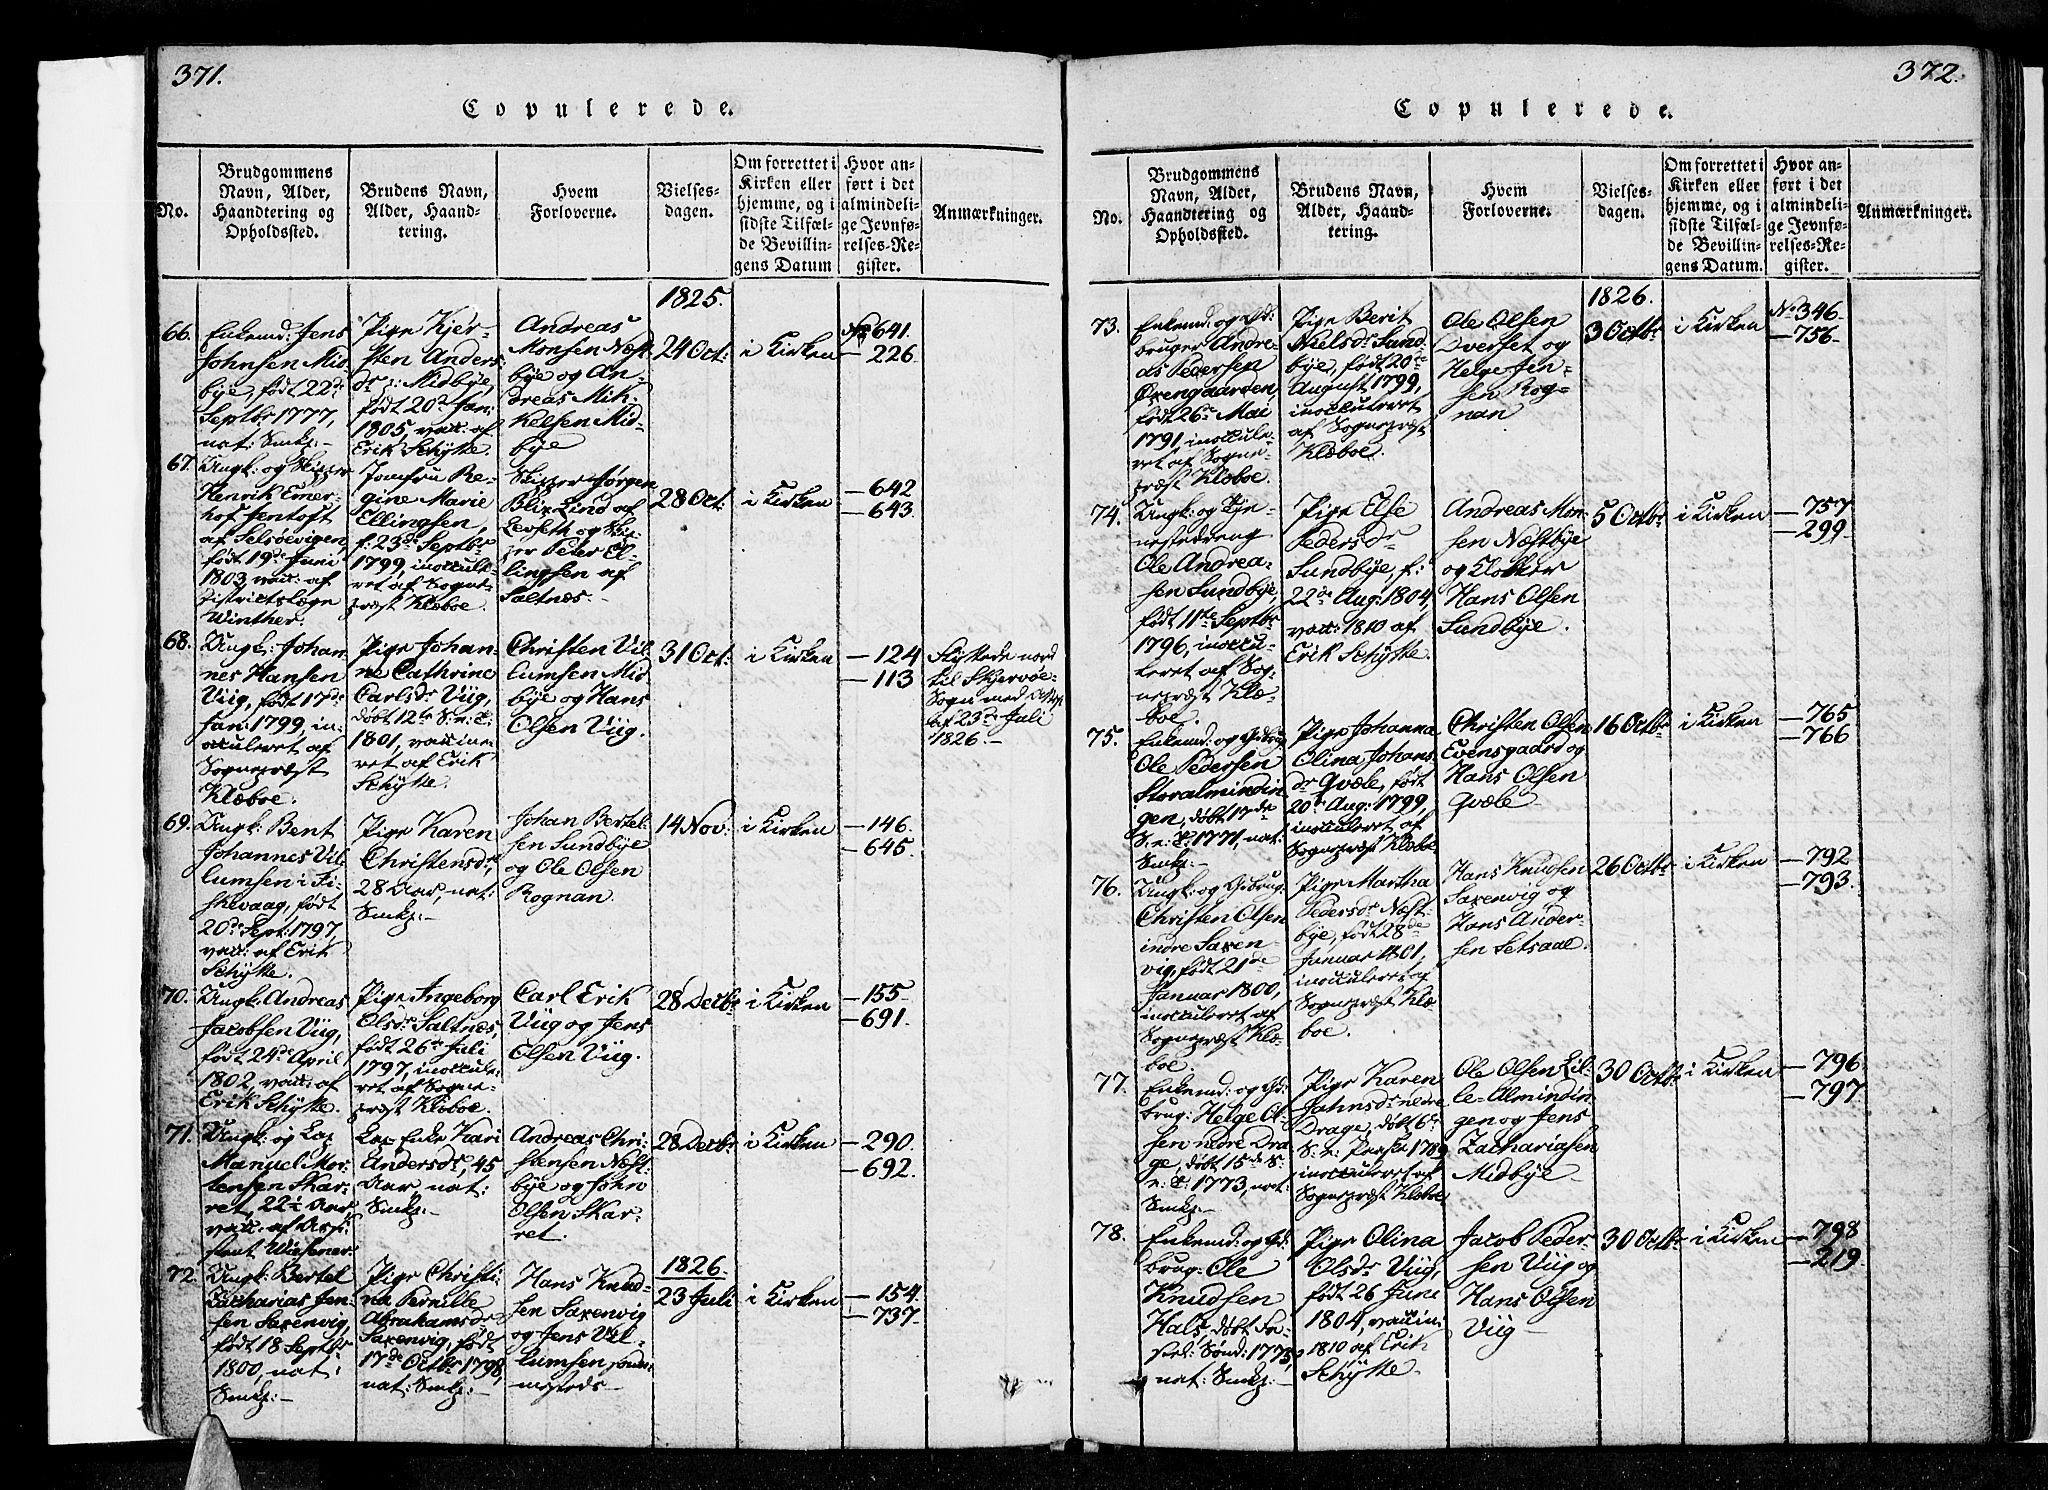 371.
Copulerede.
No.
Brudgommens
Navn, Alder,
Haandtering og
Opholdssted.
Brudens Navn,
Alder, Haand-
tering.
Hvem
Forloverne.
Vielses-
dagen.
Om forrettet i
Kirken eller
hjemme, og i
sidste Tilfæl-
de Bevillin-
gens Datum
Hvor an-
ført i det
almindeli-
ge Jevnfø-
relses-Re-
gister.
Anmærkninger.
1825.
66.
Enkemd: Jens
Johnsen Mid-
bye, født 22de
Septbr 1777,
nat: Smkp:-
Pige Kjer-
sten Anders
dr: Midbye,
født 20de Jan:
1805, vacc: af
Erik Schytte.
Andreas
Monsen Næst-
bye og An-
dreas Mik-
kelsen Mid-
bye
24 Oct:
i Kirken
No 641.
- 226.
67.
Ungk: og Skipper
Henrik Emer-
hof Jentoft
af Selsøevigen
født 19de Juni
1803, vacc: af
Districtslæge
Winther.
Jomfru Re-
gine Marie
Ellingsen,
f: 23de Septbr
1799, inoccule-
ret af Sogne-
præst Klæboe.
Skipper Jørgen
Blix Lind af
Leeseth og Skip-
per Peter El-
lingsen af
Saltnes.-
28 Oct:
i Kirken
- 642
- 643.
68.
Ungk: Johan-
nes Hansen
Viig, født 17de
Jan: 1799, in-
occuleret af
Sognepræst
Klæboe.
Pige Johan-
ne Cathrine
Carlsdr Viig,
døbt 12te S: e: T:
1801, vaccine-
ret af Erik
Schytte.
Christen Vil-
lumsen Mid-
bye og Hans
Olsen Viig.
31 Oct:
i Kirken
- 124
- 113
Flyttede nord
til Skjervøe-
Sogn med Attest
af 23de Juli
1826.-
69.
Ungk: Bent
Johannes Vil-
lumsen i Fi-
skevaag, født
20de Sept: 1797,
vacc: af Erik
Schytte.
Pige Karen
Christensdr,
28 Aar, nat:
Smkp:-
Johan Bertel-
sen Sundbye
og Ole Olsen
Rognan.
14 Nov:
i Kirken
- 146.
- 645.
70.
Ungk: Andreas
Jacobsen Viig,
født 24de April
1802, vacc: af
Erik Schytte.
Pige Ingeborg
Olsdr Saltnes,
født 26de Juli
1797, inoccule-
ret af Sogne-
præst Klæboe.
Carl Erik
Viig og Jens
Olsen Viig.
28 Decbr
i Kirken
- 155-
- 691.
71.
Ungk: og Lap
Manuel Mor-
tensen Skar-
ret, 22½ Aar,
vacc: af Assi-
stent Wiesener
Lap Enke Kari
Andersdr, 45
Aar nat:
Smkp:-
Andreas Chri-
stensen Næst-
bye og John
Olsen Skar-
ret.
28 Decbr
i Kirken
- 290.
- 692.
1826.
72.
Ungk: Bertel
Zacharias Jen-
sen Saxenvig,
født 18 Septbr
1800, nat:
Smkp:-
Pige Christi-
na Pernille
Abrahamsdr
Saxenvig, født
17de Octbr 1798,
nat: Smkp:-
Hans Knud-
sen Saxenvig
og Jens Vil-
lumsen sam-
mesteds-
23 Juli
i Kirken
- 154.
- 737.
372.
Copulerede.
No.
Brudgommens
Navn, Alder,
Haandtering og
Opholdssted.
Brudens Navn,
Alder, Haand-
tering.
Hvem
Forloverne.
Vielses-
dagen.
Om forrettet i
Kirken eller
hjemme, og i
sidste Tilfæl-
de Bevillin-
gens Datum.
Hvor an-
ført i det
almindeli-
ge Jevnfø-
relses-Re-
gister.
Anmærkninger.
1826.
73.
Enkemd: og Gd:
bruger Andre-
as Pedersen
Øxengaarden,
født 26de Mai
1791, inoccule-
ret af Sogne-
præst Klæboe.
Pige Berit
Nielsdr Sund-
bye, født 20de
August 1799,
inocculeret
af Sognepræst
Klæboe.
Ole Olsen
Dverset og
Helge Jen-
sen Rog-
nan.
3 Octbr
i Kirken
No 346-
- 756-
74.
Ungk: og Tje-
nestedreng
Ole Andrea-
sen Sundbye,
født 11te Septbr
1796, inoccu-
leret af Sog-
nepræst Klæ-
boe.
Pige Else
Pedersdr
Sundbye, f:
22de Aug: 1804,
vacc: 1810 af
Erik Schytte.
Andreas Mon-
sen Næstbye
og Klokker
Hans Olsen
Sundbye.
5 Octbr
i Kirken
- 757
- 299.
75.
Enkemd: og Gdbrug
Ole Pedersen
Storalmindin
gen, døbt 17de
S. e: T: 1771, nat:
Smkp:-
Pige Johanna
Olina Johans
dr Qvæle, født
20de Aug: 1799,
inocculeret af
Sognepræst Klæboe
Christen Olsen
Evensgaard og
Hans Olsen
Qvæle-
16 Octbr
i Kirken
- 765
- 766
76.
Ungk: og Gdbrug:
Christen Olsen
indre Saxen-
vig, født 21de
Januar 1800,
inocculeret af
Sognepræst Klæ-
boe.
Pige Martha
Pedersdr Næst-
bye, født 28de
Januar 1801,
inocculeret af
Sognepræst Klæ-
boe.
Hans Knudsen
Saxenvig og
Hans Ander-
sen Setsaae.
26 Octbr
i Kirken
- 792
- 793.
77.
Enkemd: og Gd:
brug: Helge Ol-
sen nedre Dra-
ge, døbt 15de S:
e: T: 1773, nat:
Smkp:-
Pige Karen
Jahnsdr nedre
Drage, døbt 6te
S. e: Paaske 1789
inocculeret af
Sognepræst Klæboe
Ole Olsen Lil-
le-Almindin-
gen og Jens
Zachariasen
Midbye-
30 Octbr
i Kirken
- 796
- 797.
78.
Enkemd: og Gd:
brug: Ole
Knudsen
Hals, døbt Fa-
stel: Sønd: 1775,
nat: Smkp:-
Pige Olina
Olsdr Viig,
født 26 Juni
1804, vaccin:
1810 af Erik
Schytte.
Jacob Peder-
sen Viig og
Hans Olsen
Viig-
30 Octbr
i Kirken
- 798
- 219.